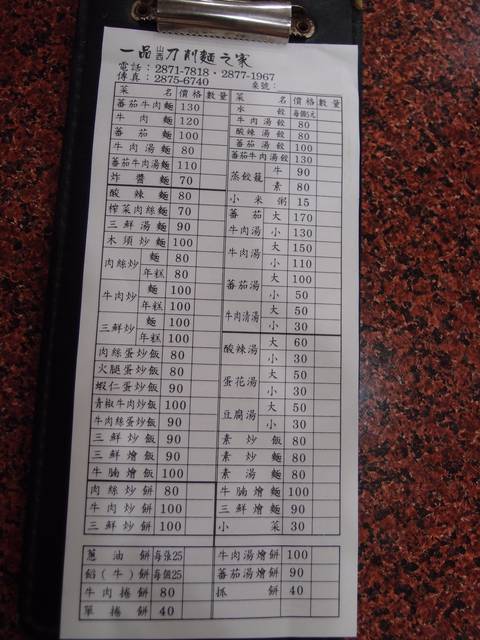 一品山西刀削麵之家
電話：2871-7818・2877-1967
傳真：2875-6740 桌號：
菜名 價格 數量
蕃茄牛肉麵 130
牛肉麵 120
蕃茄麵 100
牛肉湯麵 80
蕃茄牛肉湯麵 110
炸醬麵 70
酸辣麵 80
榨菜肉絲麵 70
三鮮湯麵 90
木須炒麵 100
肉絲炒 麵 80
年糕 80
牛肉炒 麵 100
年糕 100
三鮮炒 麵 100
年糕 100
肉絲蛋炒飯 80
火腿蛋炒飯 80
蝦仁蛋炒飯 90
青椒牛肉炒飯 100
牛肉絲蛋炒飯 90
三鮮炒飯 90
三鮮燴飯 90
牛腩燴飯 100
肉絲炒餅 80
牛肉炒餅 100
三鮮炒餅 100
菜名 價格 數量
水餃 每個5元
牛肉湯餃 80
酸辣湯餃 80
蕃茄湯餃 100
蕃茄牛肉湯餃 130
蒸餃籠 牛 90
素 80
小米粥 15
蕃茄牛肉湯 大 170
小 130
牛肉湯 大 150
小 110
蕃茄湯 大 100
小 50
牛肉清湯 大 50
小 30
酸辣湯 大 60
小 30
蛋花湯 大 50
小 30
豆腐湯 大 50
小 30
素炒飯 80
素炒麵 80
素湯麵 80
牛腩燴麵 100
三鮮燴麵 90
小菜 30
蔥油餅 每張25
餡(牛)餅 每個25
牛肉捲餅 80
單捲餅 40
牛肉湯燴餅 100
蕃茄湯燴餅 90
抓餅 40